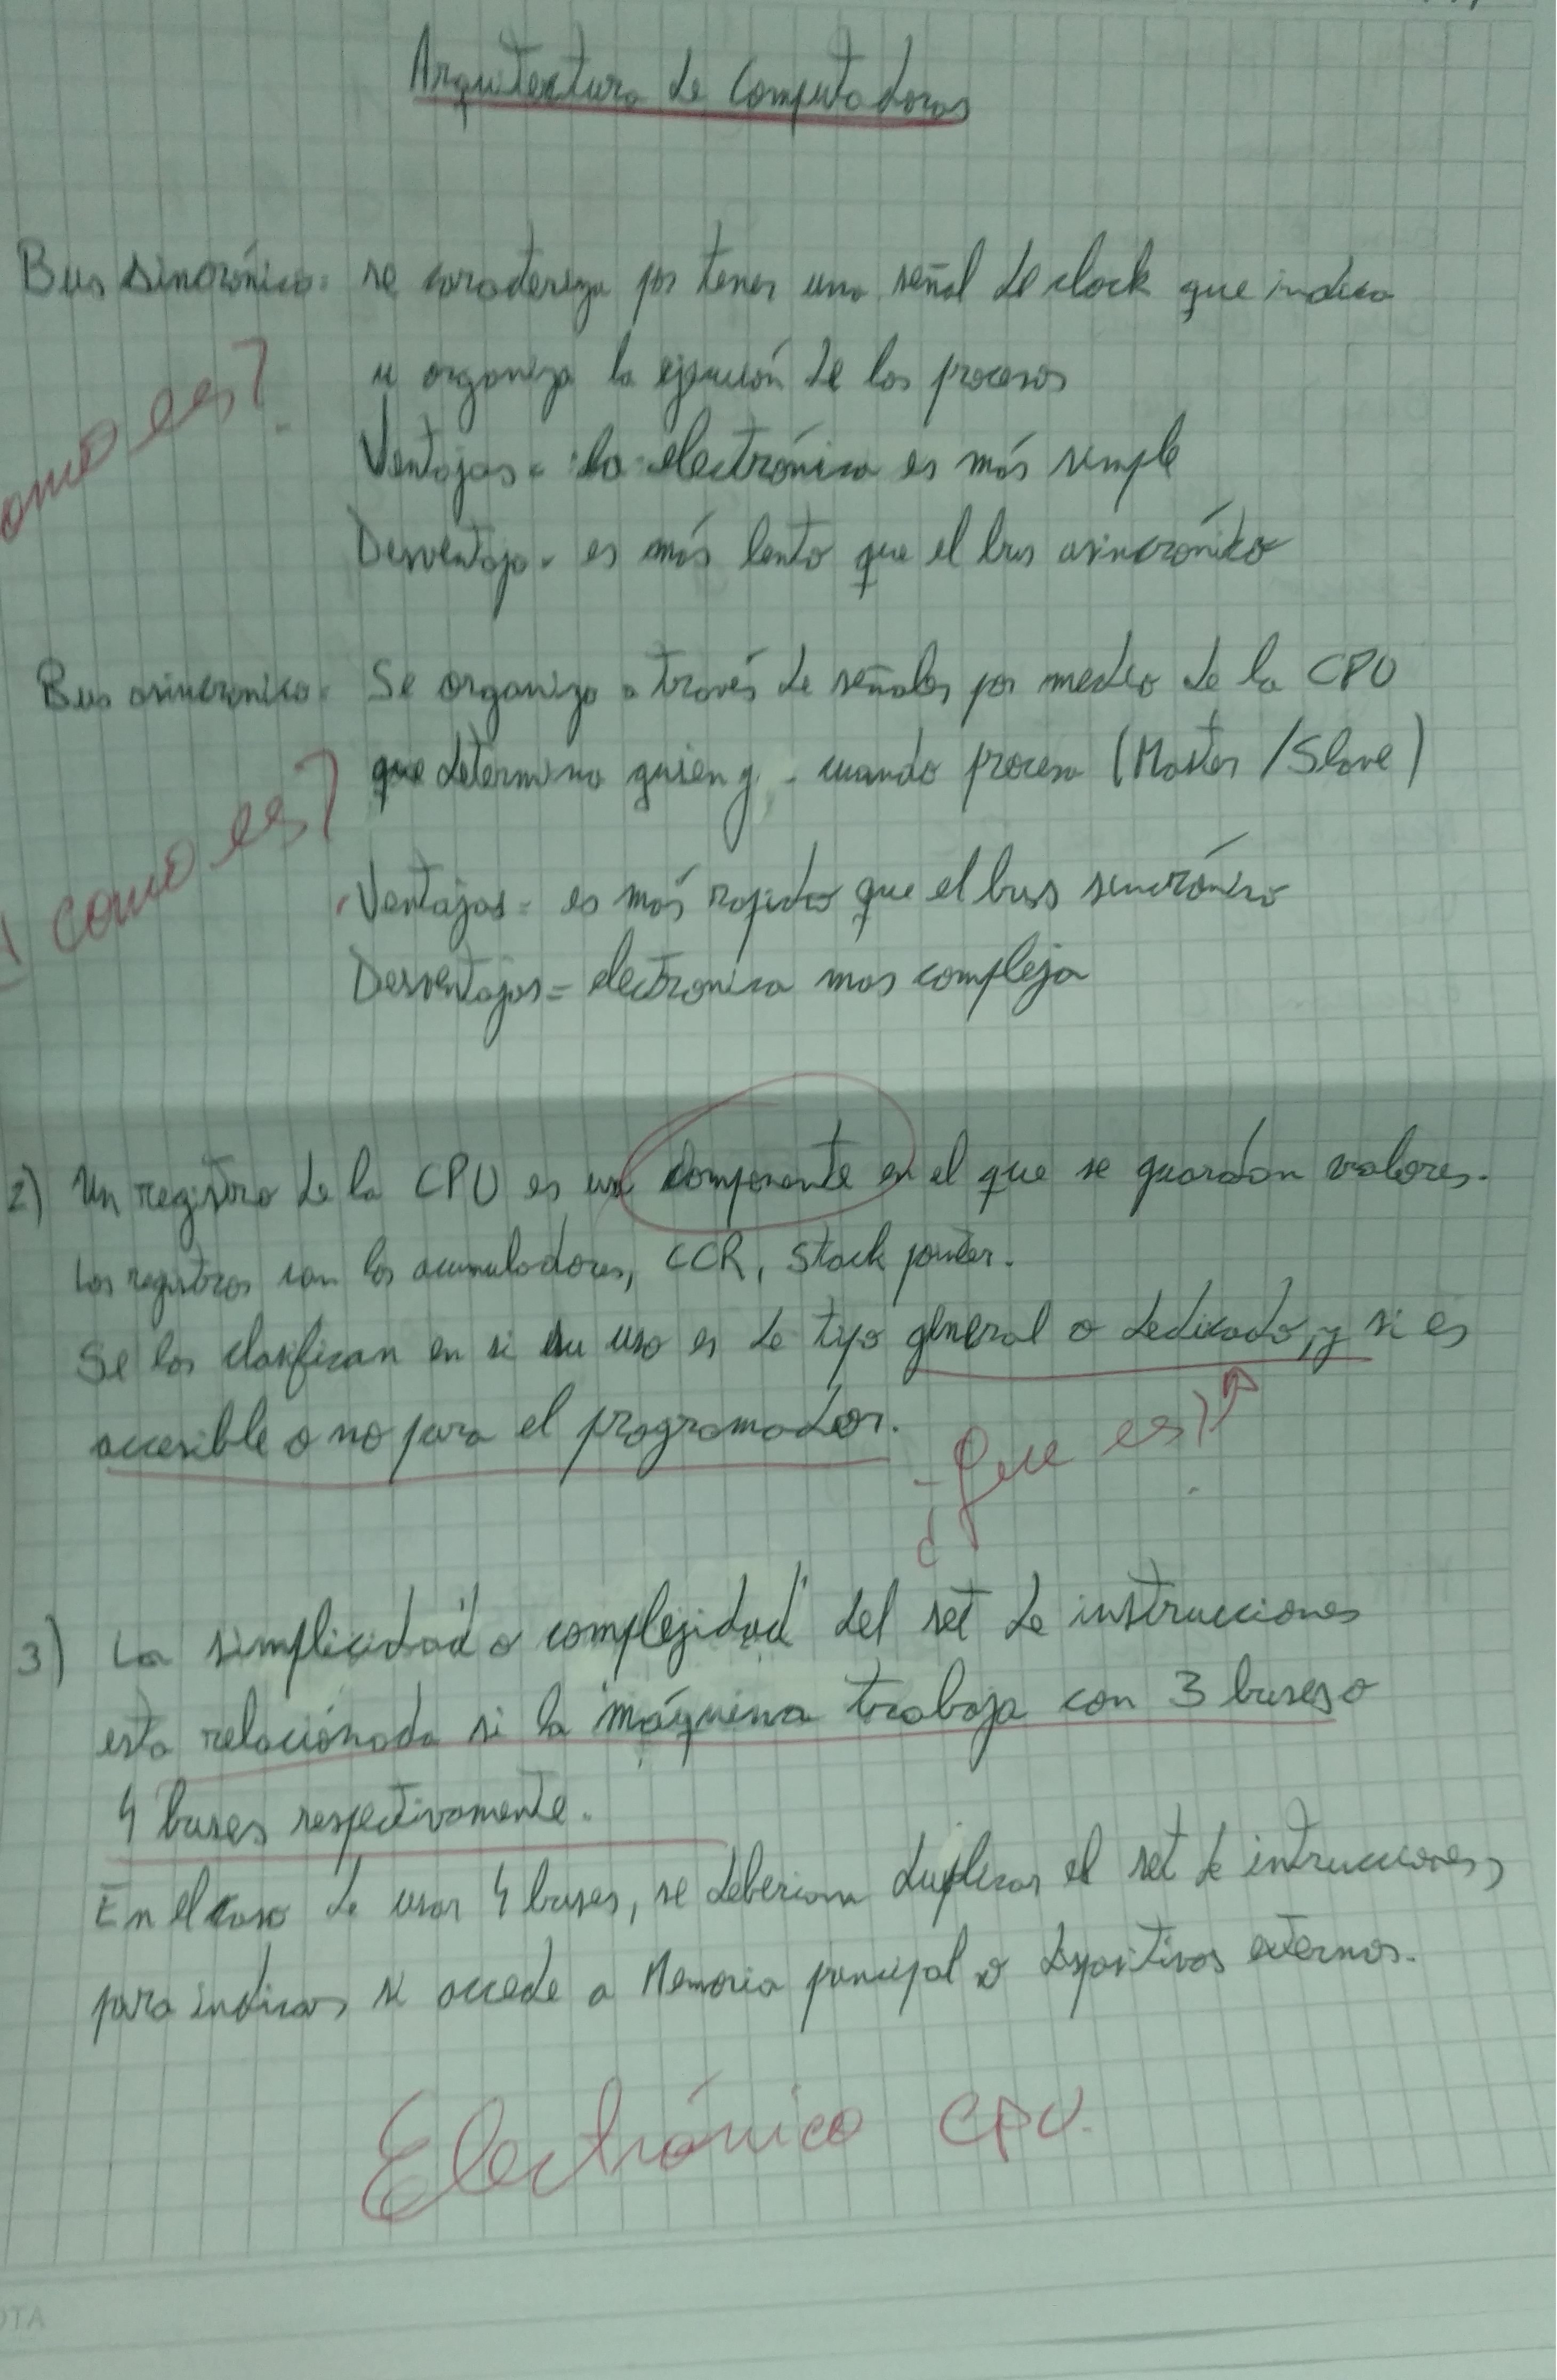 Arquitectura de Computadoras
Bus sincrónico: se caracteriza por tener una señal de clock que indica
y organiza la ejecución de los procesos
como es?
Ventajas = la electrónica es más simple
Desventaja = es más lento que el bus asincrónico
Bus asincronico = Se organiza a través de señales por medio de la CPU
que determina quien y cuando procesa (Master / Slave)
¿ como es?
Ventajas = es más rapido que el bus sincrónico
Desventajas = electronica mas compleja
2) Un registro de la CPU es un componente en el que se guardan valores.
Los registros son los acumuladores, CCR, Stack pointer.
Se los clasifican en si su uso es de tipo general o dedicado, y si es
accesible o no para el programador.
¿ Que es?
3) La simplicidad o "complejidad" del set de instrucciones
esta relacionada si la máquina trabaja con 3 buses o
4 buses respectivamente.
En el caso de usar 4 buses, se deberian duplicar el set de intrucciones,
para indicar si accede a Memoria principal o dispositivos externos.
Electrónico CPU.